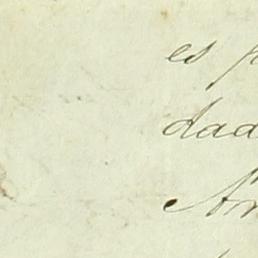 es p
dad
Am